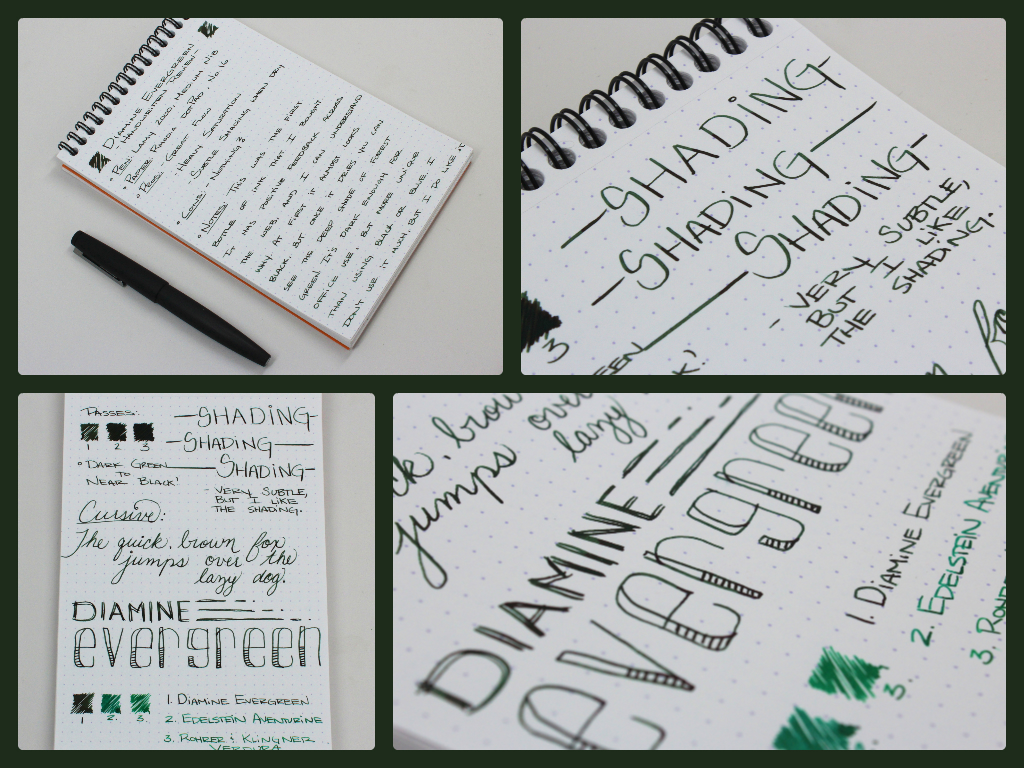 DIAMINE EVERGREEN
- HANDWRITTEN REVIEW -
• PEN: LAMY 2000, MEDIUM NIB
• PAPER: RHODIA DOTPAD No. 16
• PROS: - GREAT FLOW
- HEAVY SATURATION
- SUBTLE SHADING WHEN DRY
• CONS: - NOTHING?
• NOTES: THIS WAS THE FIRST
BOTTLE OF INK THAT I BOUGHT.
IT HAS POSITIVE FEEDBACK ACROSS
THE WEB, AND I CAN UNDERSTAND
WHY. AT FIRST IT ALMOST LOOKS
BLACK, BUT ONCE IT DRIES YOU CAN
SEE THE DEEP SHADE OF FOREST
GREEN. IT'S DARK ENOUGH FOR
OFFICE USE, BUT MORE UNIQUE
THAN USING BLACK OR BLUE. I
DON'T USE IT MUCH, BUT I DO LIKE IT.
SHADING
SHADING
SHADING
- VERY SUBTLE,
BUT I LIKE
THE SHADING.
3
EEN
K!
PASSES:
SHADING
1 2 3
SHADING
• DARK GREEN
TO
NEAR BLACK!
SHADING
- VERY SUBTLE,
BUT I LIKE
THE SHADING.
Cursive:
The quick, brown fox
jumps over the
lazy dog.
DIAMINE
evergreen
1 2. 3.
1. DIAMINE EVERGREEN
2. EDELSTEIN AVENTURINE
3. ROHRER & KLINGNER
VERDURA
ck, brow
over
jumps
lazy
DIAMINE
evergreen
1. DIAMINE EVERGREEN
2. EDELSTEIN AVENTUR
3. ROHR
3.